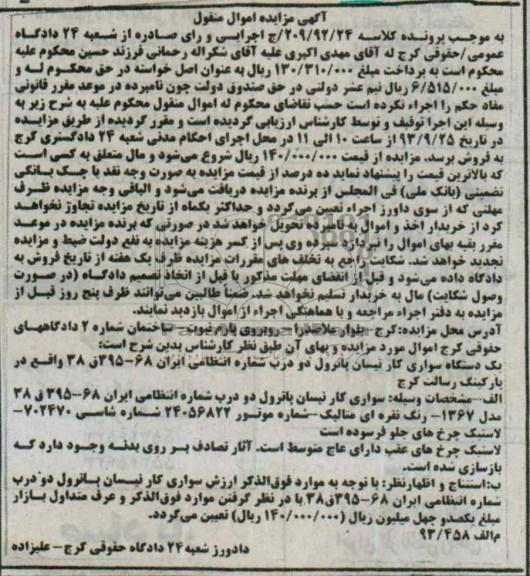 آگهی مزایده اموال منقول
به موجب پرونده کلاسه ۲۰۹/۹۲/۲۴/ج اجرایی و رای صادره از شعبه ۲۴ دادگاه
عمومی/حقوقی کرج له آقای مهدی اکبری علیه آقای شکراله رحمانی فرزند حسین محکوم علیه
محکوم است به پرداخت مبلغ ۱۳۰/۳۱۰/۰۰۰ ریال به عنوان اصل خواسته در حق محکوم له و
مبلغ ۶/۵۱۵/۰۰۰ ریال نیم عشر دولتی در حق صندوق دولت چون نامبرده در موعد مقرر قانونی
مفاد حکم را اجراء نکرده است حسب تقاضای محکوم له اموال منقول محکوم علیه به شرح زیر به
وسیله این اجرا توقیف و توسط کارشناس ارزیابی گردیده است و مقرر گردیده از طریق مزایده
در تاریخ ۹۳/۹/۲۵ از ساعت ۱۰ الی ۱۱ در محل اجرای احکام مدنی شعبه ۲۴ دادگستری کرج
به فروش برسد. مزایده از قیمت ۱۴۰/۰۰۰/۰۰۰ ریال شروع می‌شود و مال متعلق به کسی است
که بالاترین قیمت را پیشنهاد نماید ده درصد از قیمت مزایده به صورت وجه نقد یا چک بانکی
تضمینی (بانک ملی) فی المجلس از برنده مزایده دریافت می‌شود و الباقی وجه مزایده ظرف
مهلتی که از سوی داورز اجراء تعیین می‌گردد و حداکثر یکماه از تاریخ مزایده تجاوز نخواهد
کرد از خریدار اخذ و اموال به نامبرده تحویل خواهد شد در صورتی که برنده مزایده در موعد
مقرر بقیه بهای اموال را نپردازد سپرده وی پس از کسر هزینه مزایده به نفع دولت ضبط و مزایده
تجدید خواهد شد. شکایت راجع به تخلف های مقررات مزایده ظرف یک هفته از تاریخ فروش به
دادگاه داده می‌شود و قبل از انقضای مهلت مذکور یا قبل از اتخاذ تصمیم دادگاه (در صورت
وصول شکایت) مال به خریدار تسلیم نخواهد شد. ضمناً طالبین می‌توانند ظرف پنج روز قبل از
مزایده به دفتر اجراء مراجعه و با هماهنگی اجراء از اموال بازدید نمایند.
آدرس محل مزایده: کرج – بلوار ملاصدرا – روبروی پارک نبوت – ساختمان شماره ۲ دادگاههای
حقوقی کرج اموال مورد مزایده و بهای آن طبق نظر کارشناس بدین شرح است:
یک دستگاه سواری کار نیسان پاترول دو درب شماره انتظامی ایران ۶۸-۳۹۵ق ۳۸ واقع در
پارکینگ رسالت کرج
الف-مشخصات وسیله: سواری کار نیسان پاترول دو درب شماره انتظامی ایران ۶۸-۳۹۵ ق ۳۸
مدل ۱۳۶۷- رنگ نقره ای متالیک-شماره موتور ۲۴۰۵۶۸۲۲ شماره شاسی ۷۰۲۴۷۰-
لاستیک چرخ های جلو فرسوده است
لاستیک چرخ های عقب دارای عاج متوسط است. آثار تصادف بر روی بدنه وجود دارد که
بازسازی شده است.
ب: استنتاج و اظهارنظر: با توجه به موارد فوق‌الذکر ارزش سواری کار نیسان پاترول دو درب
شماره انتظامی ایران ۶۸-۳۹۵ق۳۸ با در نظر گرفتن موارد فوق‌الذکر و عرف متداول بازار
مبلغ یکصدو چهل میلیون ریال (۱۴۰/۰۰۰/۰۰۰ ریال) تعیین می‌گردد.
م/الف ۹۳/۴۵۸
دادورز شعبه ۲۴ دادگاه حقوقی کرج- علیزاده